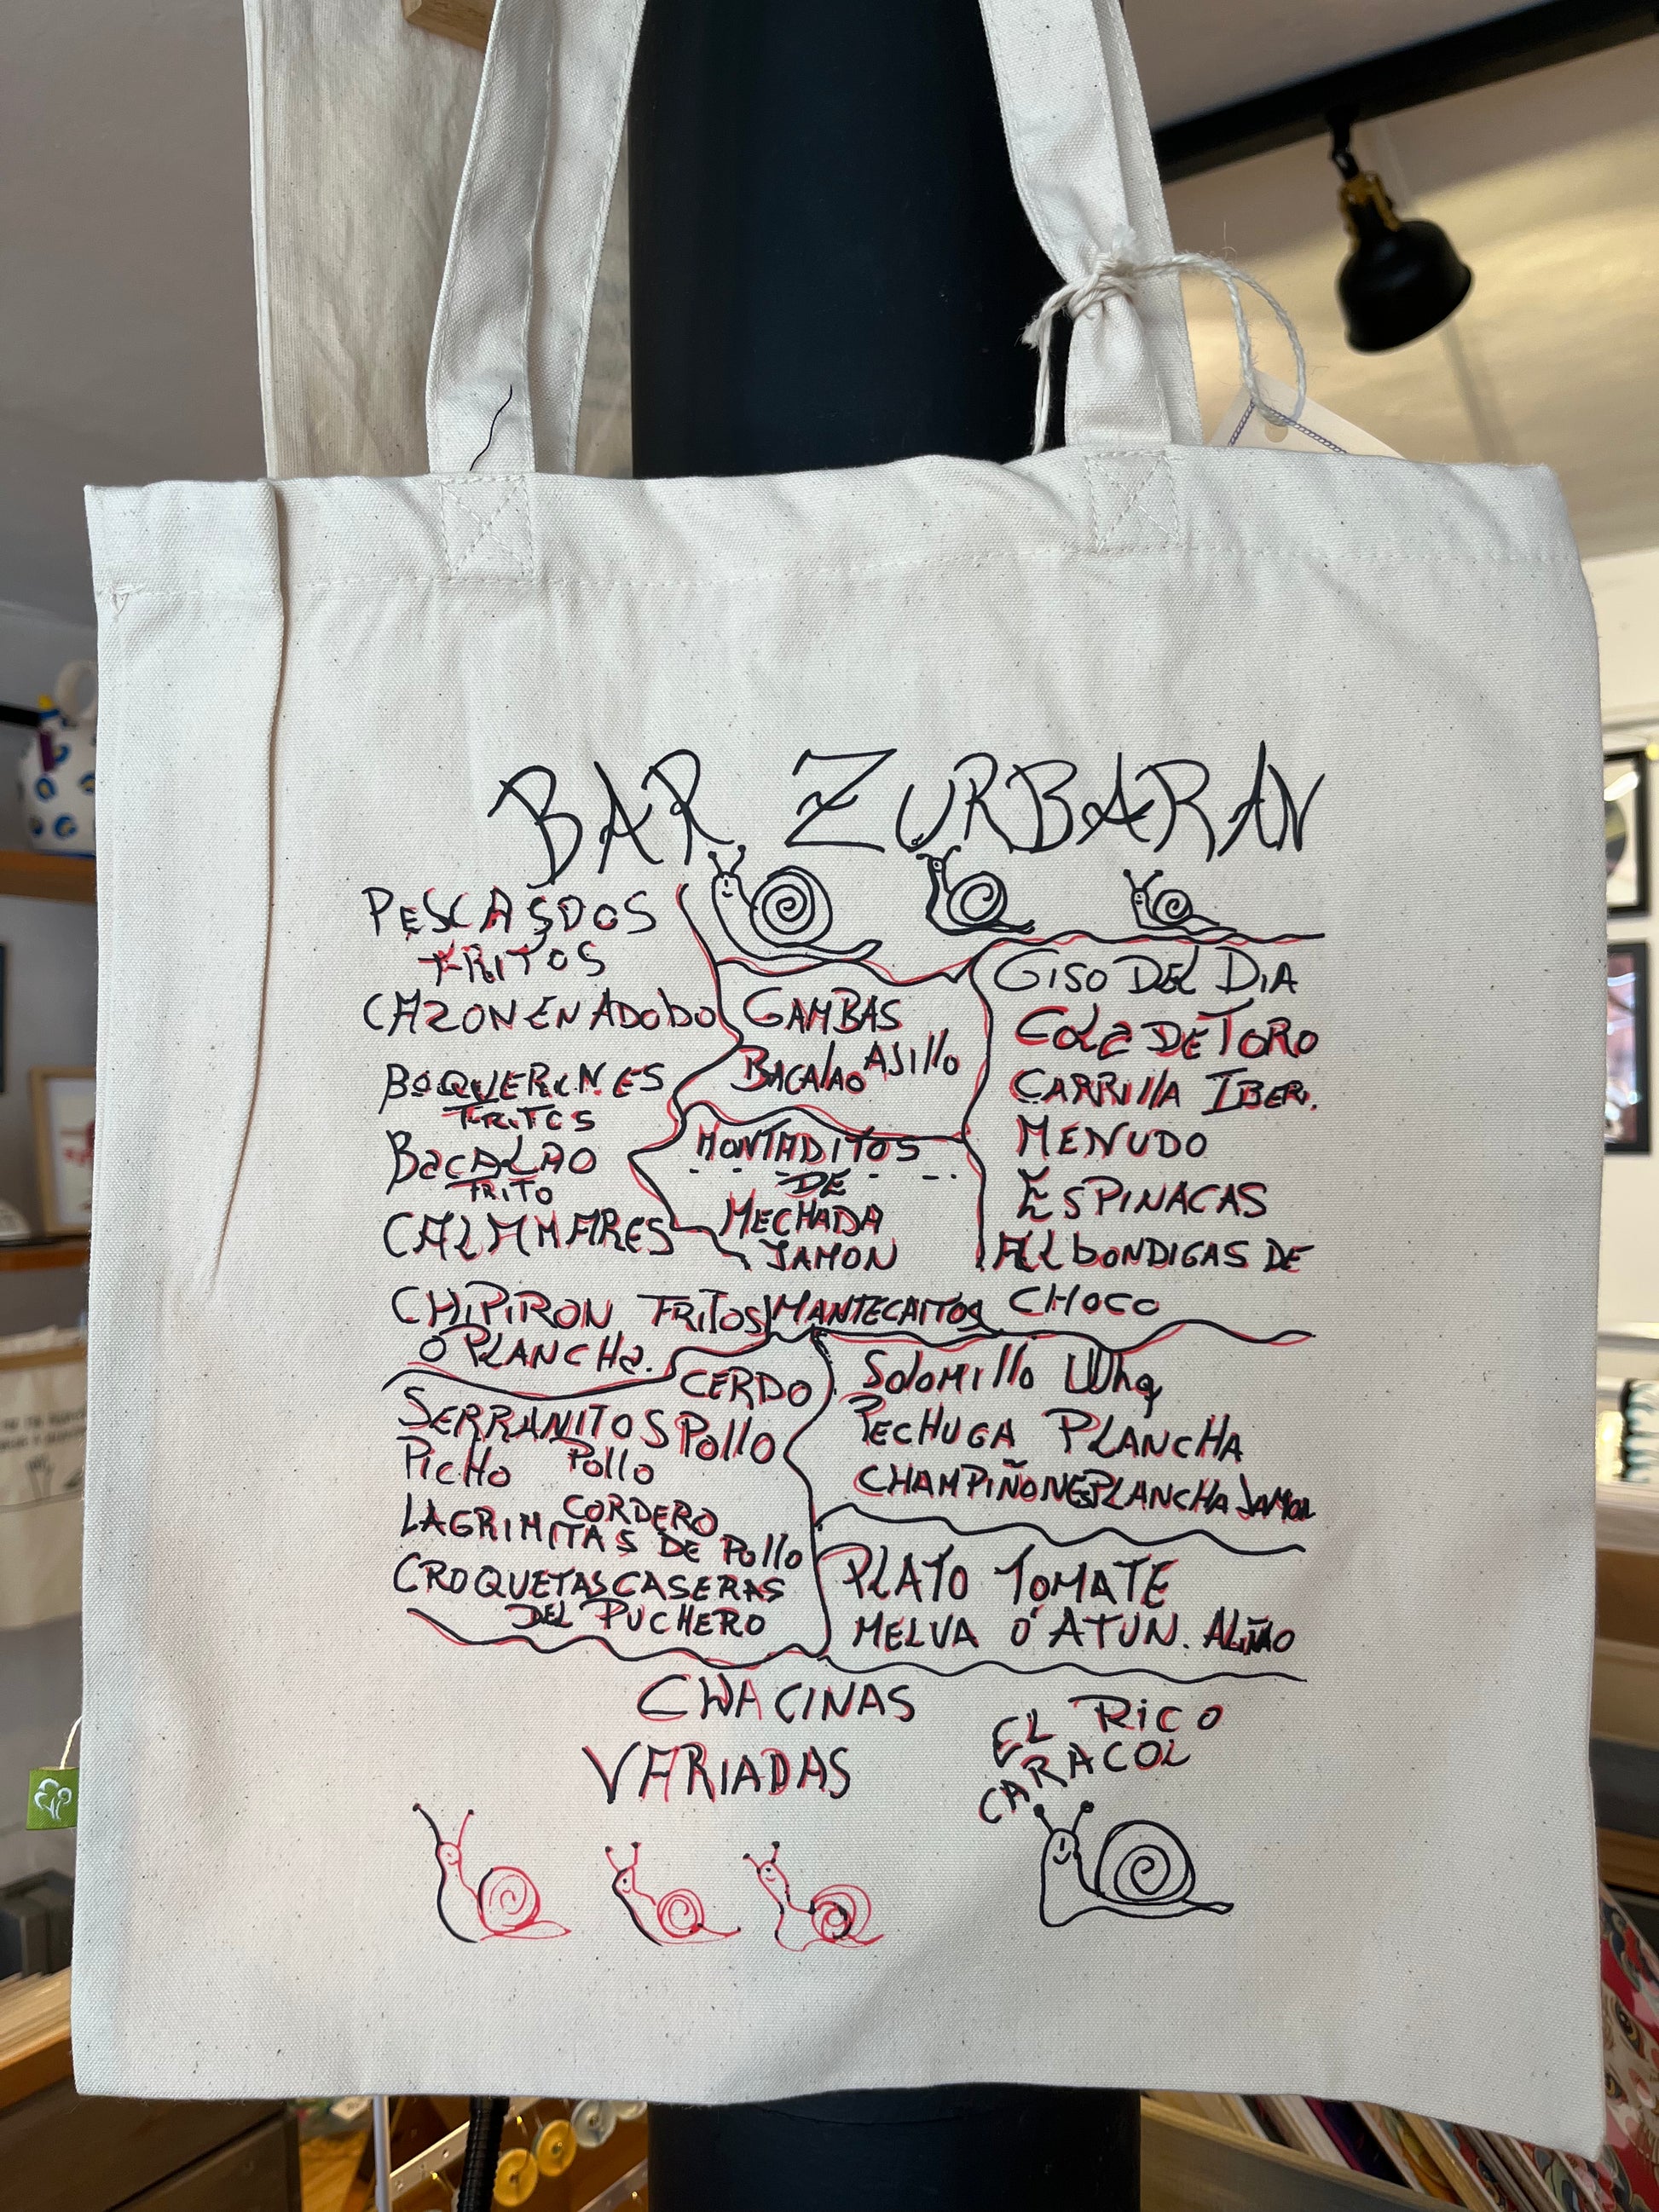 BAR ZURBARAN
PESCASDOS
FRITOS
CAZON EN ADOBO
BOQUERONES
FRITOS
BACALAO
FRITO
CALAMARES
CHIPIRON FRITOS
O PLANCHA.
GAMBAS
BACALAO AJILLO
MONTADITOS
DE
MECHADA
JAMON
MANTECAITOS
GISO DEL DIA
COLA DE TORO
CARRILLA IBER.
MENUDO
ESPINACAS
ALBONDIGAS DE
CHOCO
CERDO
SERRANITOS POLLO
PICHO POLLO
CORDERO
LAGRIMITAS DE POLLO
CROQUETAS CASERAS
DEL PUCHERO
SOLOMILLO WHQ
PECHUGA PLANCHA
CHAMPIÑONES PLANCHA JAMON
PLATO TOMATE
MELVA O ATUN. ALIÑAO
CHACINAS
VARIADAS
EL RICO
CARACOL